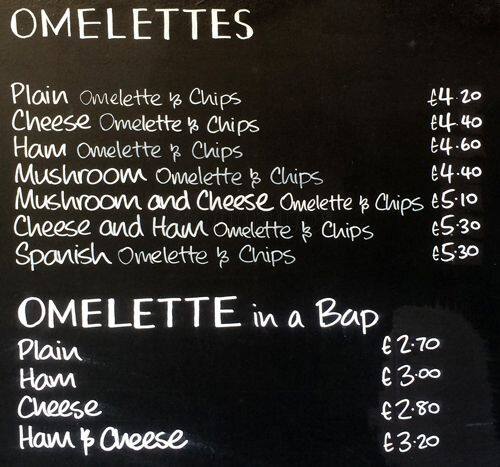 OMELETTES
Plain Omelette & Chips £4.20
Cheese Omelette & Chips £4.40
Ham Omelette & Chips £4.60
Mushroom Omelette & Chips £4.40
Mushroom and Cheese Omelette & Chips £5.10
Cheese and Ham Omelette & Chips £5.30
Spanish Omelette & Chips £5.30
OMELETTE in a Bap
Plain £2.70
Ham £3.00
Cheese £2.80
Ham & Cheese £3.20